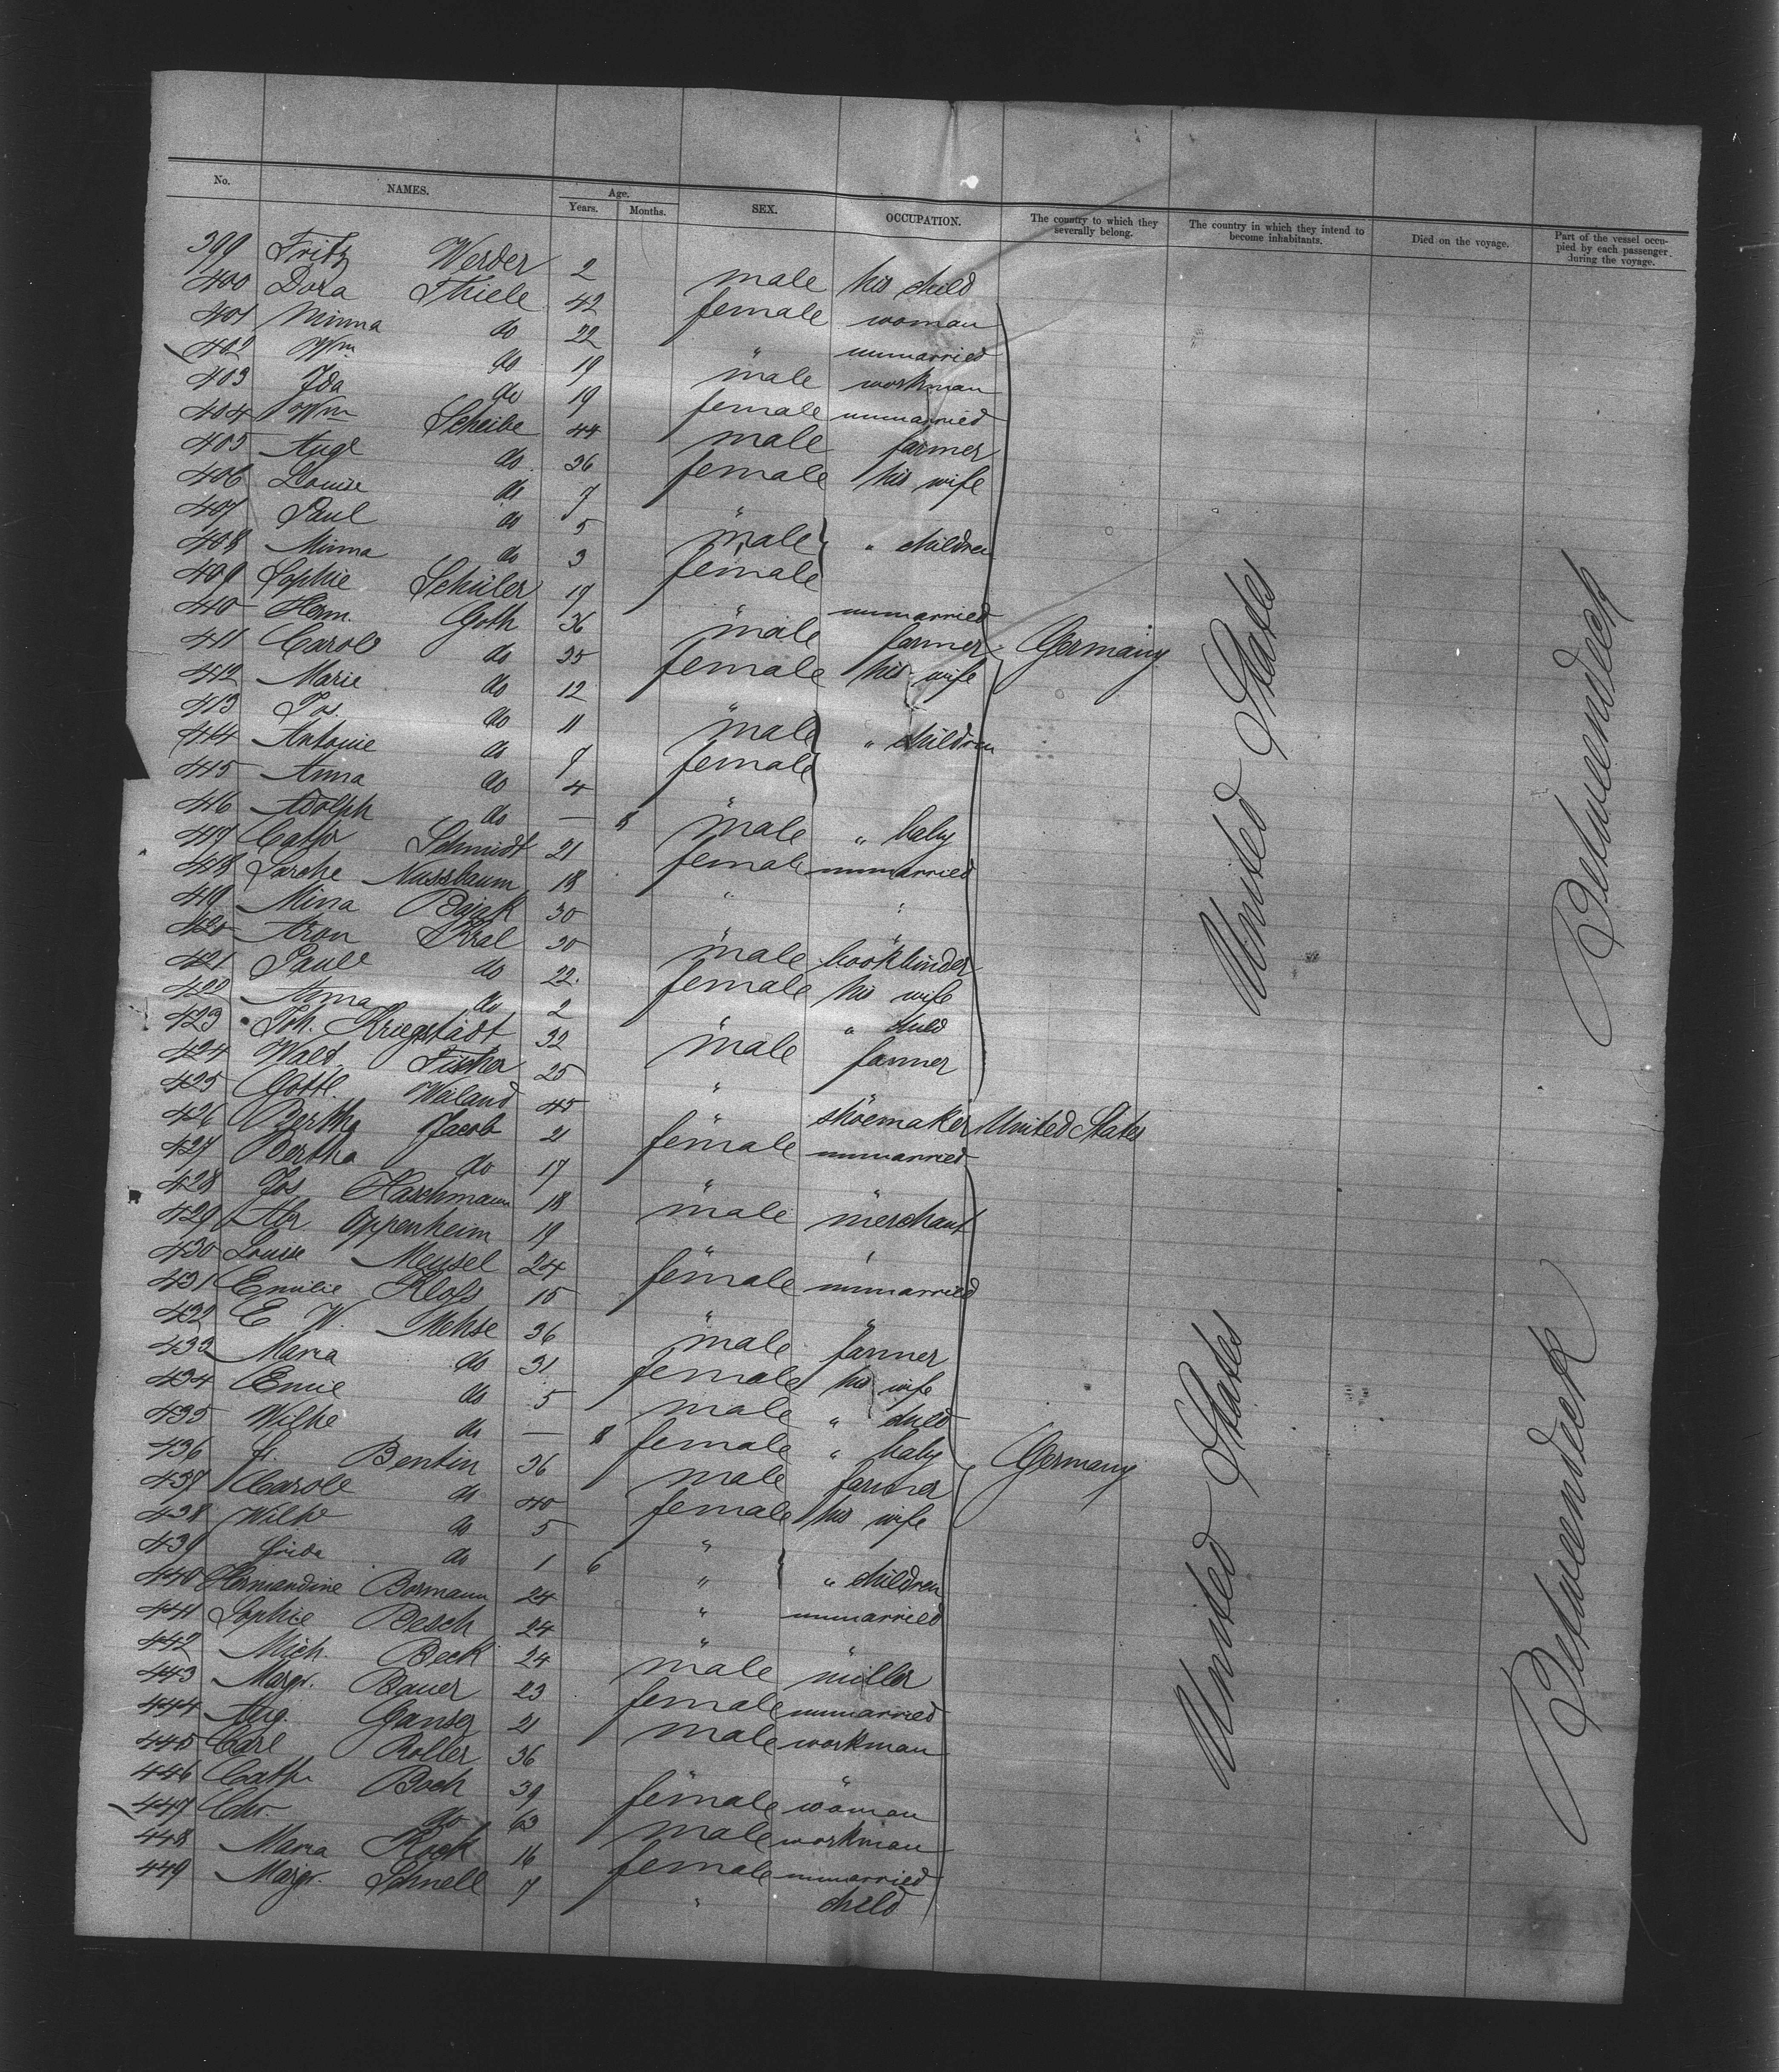 No. NAMES. Age. Years. Months. SEX. OCCUPATION. The country to which they severally belong. The country in which they intend to become inhabitants. Died on the voyage. Part of the vessel occupied by each passenger during the voyage.
399 Fritz Werder 2 male his child
400 Dora Thiele 42 female woman
401 Minna do 22 " unmarried
402 Wm do 19 male workman
403 Ida do 19 female unmarried
404 Wm Scheibe 44 male farmer
405 Auge do 36 female his wife
406 Louise do 7 "
407 Paul do 5 male " children
408 Minna do 3 female
409 Sophie Schüler 19 " unmarried
410 Herm. Goth 36 male farmer Germany
411 Carol do 35 female his wife
412 Marie do 12 "
413 Jos. do 11 male " children
414 Antonie do 7 female
415 Anna do 4 "
416 Adolph do — 8 male " baby
417 Cathr Schmidt 21 female unmarried
418 Sarche Nussbaum 18 " "
419 Mina Bajak 30 " "
420 Aron Kral 30 male bookbinder
421 Paule do 22 female his wife
422 Anna do 2 " " child
423 Joh. Kriegstädt 32 male farmer
424 Wald. Fischer 25 " "
425 Gottl. Weiland 45 " shoemaker United States
426 Bertha Jacob 21 female unmarried
427 Bertha do 17 " "
428 Jos Haschmann 18 male merchant
429 Abr Oppenheim 19 " "
430 Louise Meusel 24 female unmarried
431 Emilie Kloss 15 " "
432 E W. Mehse 36 male farmer
433 Maria do 31 female his wife
434 Emil do 5 male " child
435 Wilhe do — 8 female " baby
436 H. Bentin 36 male farmer Germany
437 Carole do 40 female his wife
438 Wilhe do 5 "
439 Frida do 1 6 " " children
440 Hernandine Bormann 24 " unmarried
441 Sophie Besch 24 " "
442 Mich. Beck 24 male miller
443 Margr. Bauer 23 female unmarried
444 Aug. Ganser 21 male workman
445 Carl Roller 36 " "
446 Cathr Boch 39 female woman
447 Chr. do 63 male workman
448 Maria Koch 16 female unmarried
449 Margr. Schnell 7 " child
United States
Betweendeck
United States
Betweendeck